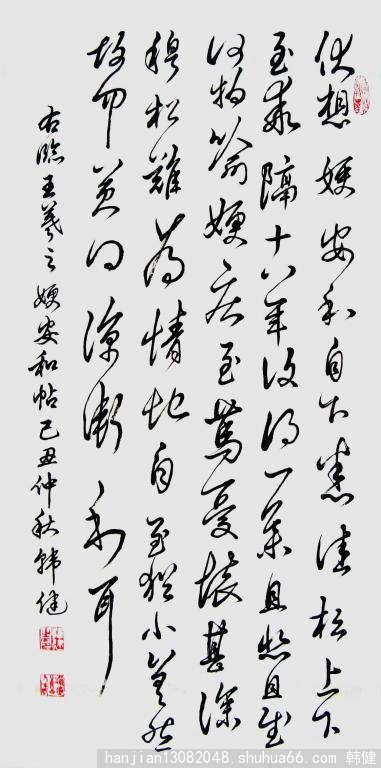 伏想嫂安和自下悉佳松上下
至乖隔十八年復得一集且悲且慰
何物喻嫂疾至篤憂懷甚深
穆松難為情地自至猶小差然
故勿勿冀得涼漸和耳
右臨王羲之嫂安和帖己丑仲秋韓健
hanjian13082048.shuhua66.com 韩健